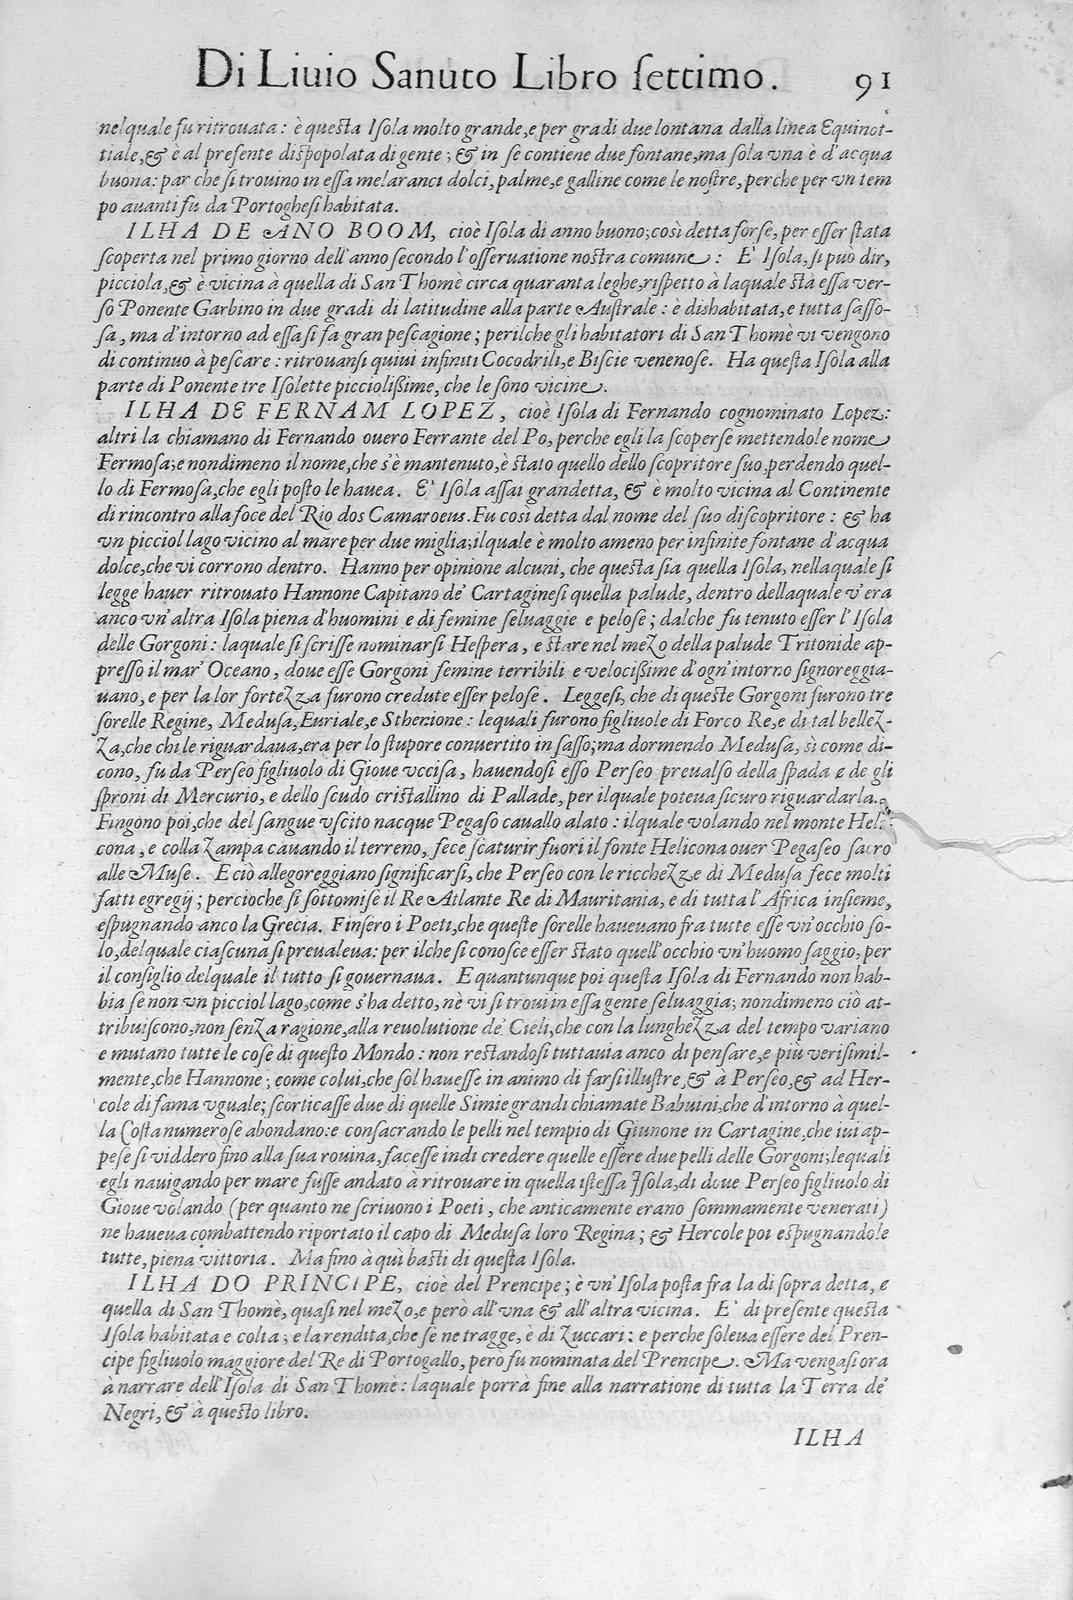 Di Liuio Sanuto Libro ſettimo. 91
nel quale fu ritrouata: è queſta Iſola molto grande, e per gradi due lontana dalla linea Equinot-
tiale, & è al preſente diſpopolata di gente; & in ſe contiene due fontane, ma ſola vna è d'acqua
buona: par che ſi trouino in eſſa melaranci dolci, palme, e galline come le noſtre, perche per vn tem
po auanti fu da Portogheſi habitata.
ILHA DE ANO BOOM, cioè Iſola di anno buono; così detta forſe, per eſſer ſtata
ſcoperta nel primo giorno dell'anno ſecondo l'oſſeruatione noſtra comune: E' Iſola, ſi può dir,
picciola, & è vicina à quella di San Thomè circa quaranta leghe, riſpetto à laquale ſtà eſſa ver-
ſo Ponente Garbino in due gradi di latitudine alla parte Auſtrale: è dishabitata, e tutta ſaſſo-
ſa, ma d'intorno ad eſſa ſi fa gran peſcagione; perilche gli habitatori di San Thomè vi vengono
di continuo à peſcare: ritrouanſi quiui infiniti Cocodrili, e Biſcie venenoſe. Ha queſta Iſola alla
parte di Ponente tre Iſolette piccioliſſime, che le ſono vicine.
ILHA DE FERNAM LOPEZ, cioè Iſola di Fernando cognominato Lopez:
altri la chiamano di Fernando ouero Ferrante del Po, perche egli la ſcoperſe mettendole nome
Fermoſa; e nondimeno il nome, che s'è mantenuto, è ſtato quello dello ſcopritore ſuo, perdendo quel-
lo di Fermoſa, che egli poſto le hauea. E' Iſola aſſai grandetta, & è molto vicina al Continente
di rincontro alla foce del Rio dos Camaroeus. Fu così detta dal nome del ſuo diſcopritore: & ha
vn picciol lago vicino al mare per due miglia; ilquale è molto ameno per infinite fontane d'acqua
dolce, che vi corrono dentro. Hanno per opinione alcuni, che queſta ſia quella Iſola, nellaquale ſi
legge hauer ritrouato Hannone Capitano de' Cartagineſi quella palude, dentro dellaquale v'era
anco vn'altra Iſola piena d'huomini e di femine ſeluaggie e peloſe; dalche fu tenuto eſſer l'Iſola
delle Gorgoni: laquale ſi ſcriſſe nominarſi Heſpera, e ſtare nel mezo della palude Tritonide ap-
preſſo il mar' Oceano, doue eſſe Gorgoni femine terribili e velociſſime d'ogn'intorno ſignoreggia-
uano, e per la lor fortezza furono credute eſſer peloſe. Leggeſi, che di queſte Gorgoni furono tre
ſorelle Regine, Meduſa, Euriale, e Sthenone: lequali furono figliuole di Forco Re, e di tal bellez-
za, che chi le riguardaua, era per lo ſtupore conuertito in ſaſſo; ma dormendo Meduſa, sì come di-
cono, fu da Perſeo figliuolo di Gioue vcciſa, hauendoſi eſſo Perſeo preualſo della ſpada e de gli
ſproni di Mercurio, e dello ſcudo criſtallino di Pallade, per ilquale poteua ſicuro riguardarla.
Fingono poi, che del ſangue vſcito nacque Pegaſo cauallo alato: ilquale volando nel monte Heli-
cona, e colla zampa cauando il terreno, fece ſcaturir fuori il fonte Helicona ouer Pegaſeo ſacro
alle Muſe. E ciò allegoreggiano ſignificarſi, che Perſeo con le ricchezze di Meduſa fece molti
fatti egregij; percioche ſi ſottomiſe il Re Atlante Re di Mauritania, e di tutta l'Africa inſieme,
eſpugnando anco la Grecia. Finſero i Poeti, che queſte ſorelle haueuano fra tutte eſſe vn'occhio ſo-
lo, delquale ciaſcuna ſi preualeua: per ilche ſi conoſce eſſer ſtato quell'occhio vn'huomo ſaggio, per
il conſiglio delquale il tutto ſi gouernaua. E quantunque poi queſta Iſola di Fernando non hab-
bia ſe non vn picciol lago, come s'ha detto, nè vi ſi troui in eſſa gente ſeluaggia; nondimeno ciò at-
tribuiſcono, non ſenza ragione, alla reuolutione de' Cieli, che con la lunghezza del tempo variano
e mutano tutte le coſe di queſto Mondo: non reſtandoſi tuttauia anco di penſare, e più veriſimil-
mente, che Hannone; come colui, che ſol haueſſe in animo di farſi illuſtre, & à Perſeo, & ad Her-
cole di fama vguale; ſcorticaſſe due di quelle Simie grandi chiamate Babuini, che d'intorno à quel-
la Coſta numeroſe abondano: e conſacrando le pelli nel tempio di Giunone in Cartagine, che iui ap-
peſe ſi viddero fino alla ſua rouina, faceſſe indi credere quelle eſſere due pelli delle Gorgoni; lequali
egli nauigando per mare fuſſe andato à ritrouare in quella iſteſſa Iſola, di doue Perſeo figliuolo di
Gioue volando (per quanto ne ſcriuono i Poeti, che anticamente erano ſommamente venerati)
ne haueua combattendo riportato il capo di Meduſa loro Regina; & Hercole poi eſpugnandole
tutte, piena vittoria. Ma fino à quì baſti di queſta Iſola.
ILHA DO PRINCIPE, cioè del Prencipe; è vn'Iſola poſta fra la di ſopra detta, e
quella di San Thomè, quaſi nel mezo, e però all'vna & all'altra vicina. E' di preſente queſta
Iſola habitata e colta; e la rendita, che ſe ne tragge, è di Zuccari: e perche ſoleua eſſere del Pren-
cipe figliuolo maggiore del Re di Portogallo, però fu nominata del Prencipe. Ma vengaſi ora
à narrare dell'Iſola di San Thomè: laquale porrà fine alla narratione di tutta la Terra de'
Negri, & à queſto libro.
ILHA